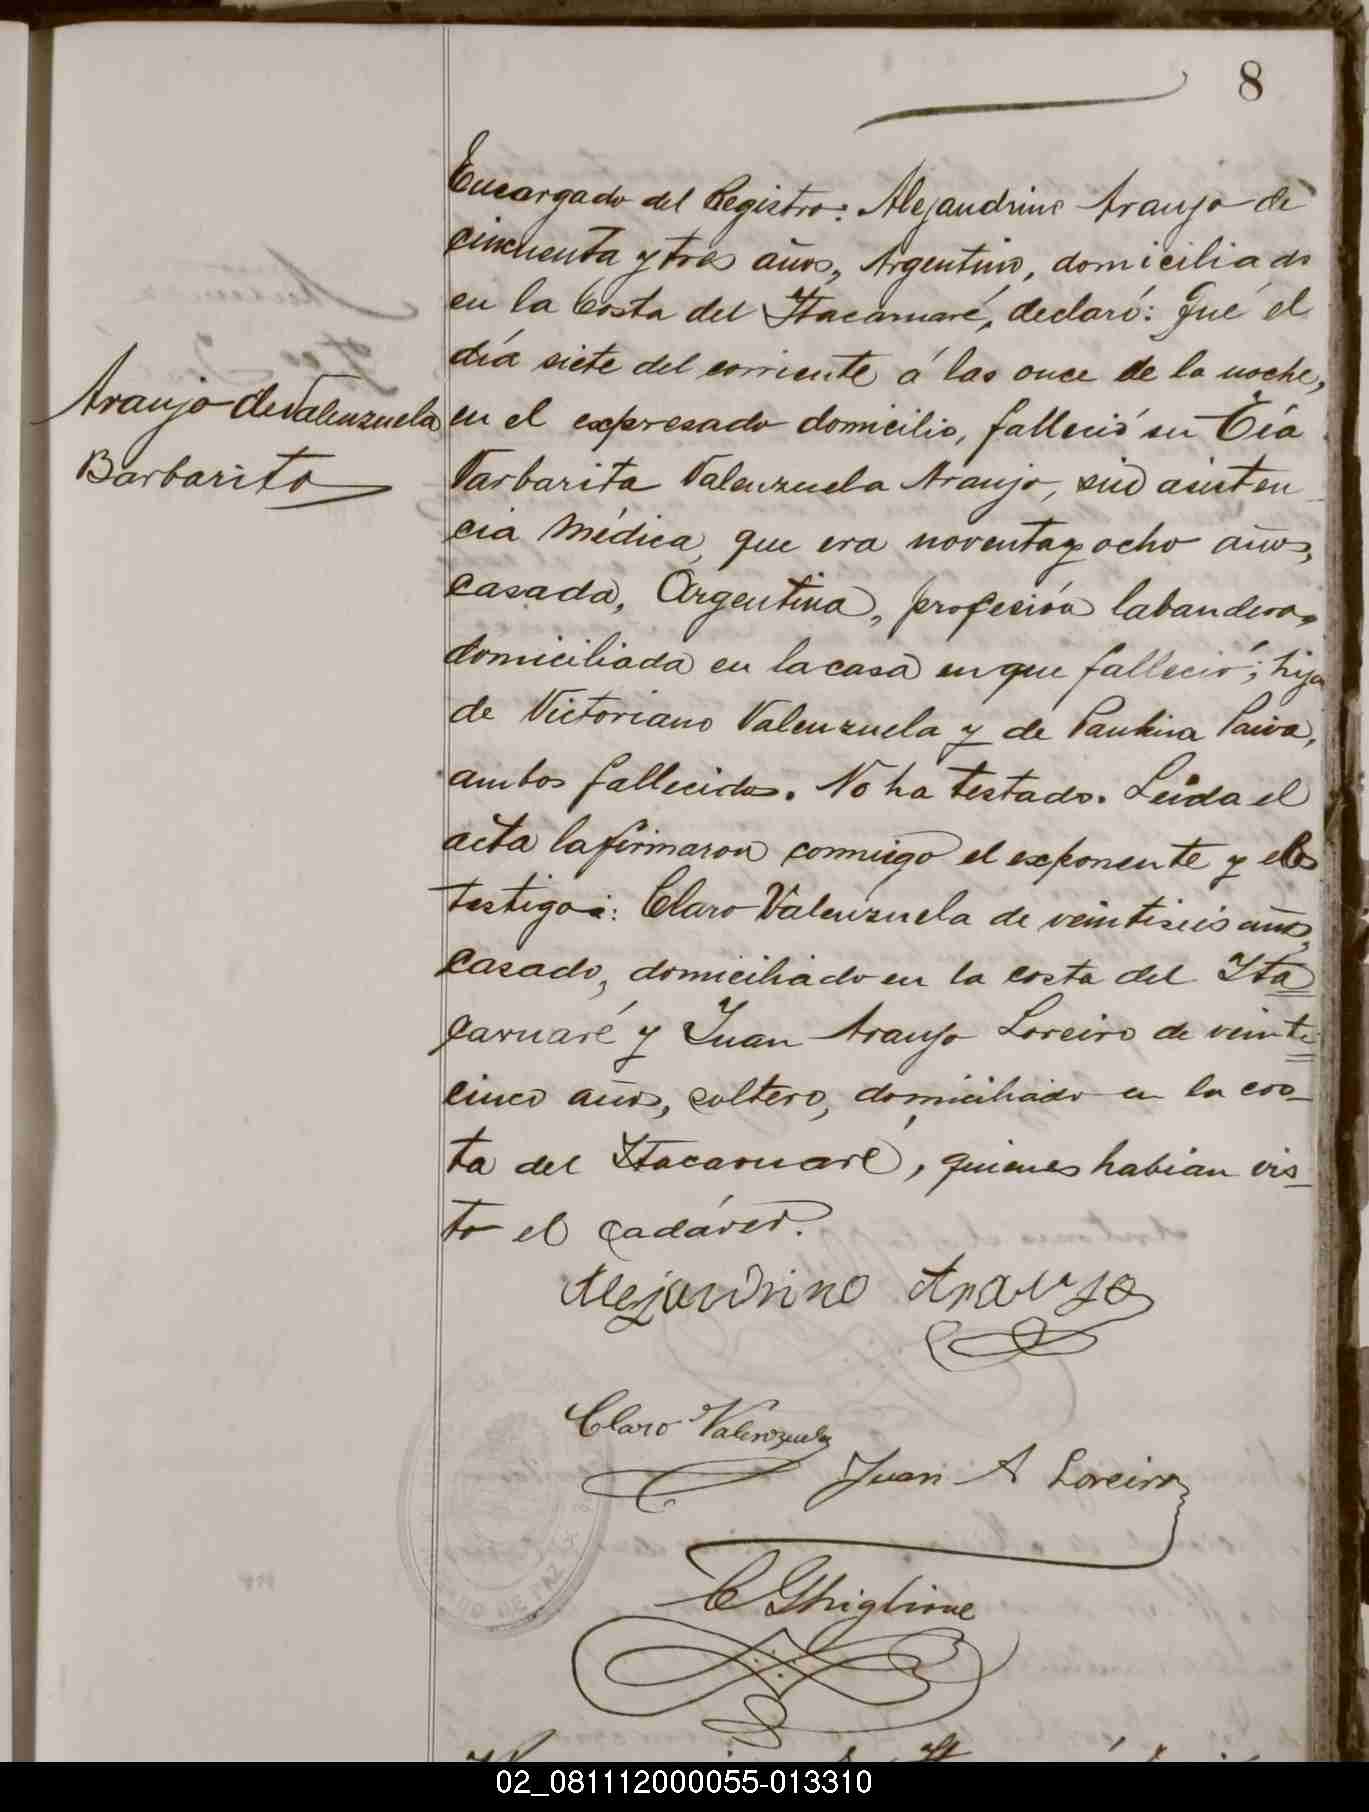 8
Encargado del Registro: Alejandrino Araujo de
cincuenta y tres años, Argentino, domiciliado
en la Costa del Itacaruaré, declaró: Qué el
día siete del corriente á las once de la noche,
Araujo de Valenzuela
Barbarita
en el expresado domicilio, falleció su Tía
Varbarita Valenzuela Araujo, sin asisten
cia Médica, que era noventa y ocho años,
casada, Argentina, profesión labandera,
domiciliada en la casa en que falleció; hija
de Victoriano Valenzuela y de Paulina Paiva,
ambos fallecidos. No ha testado. Leida el
acta la firmaron conmigo el exponente y los
testigos: Claro Valenzuela de veintiseis años,
casado, domiciliado en la costa del Ita
caruaré y Juan Araujo Loreiro de veinti
cinco años, soltero, domiciliado en la cos-
ta del Itacaruaré, quienes habian vis-
to el cadáver.
Alejandrino Araujo
Claro Valenzuela
Juan A Loreiro
C Ghiglione
02_081112000055-013310